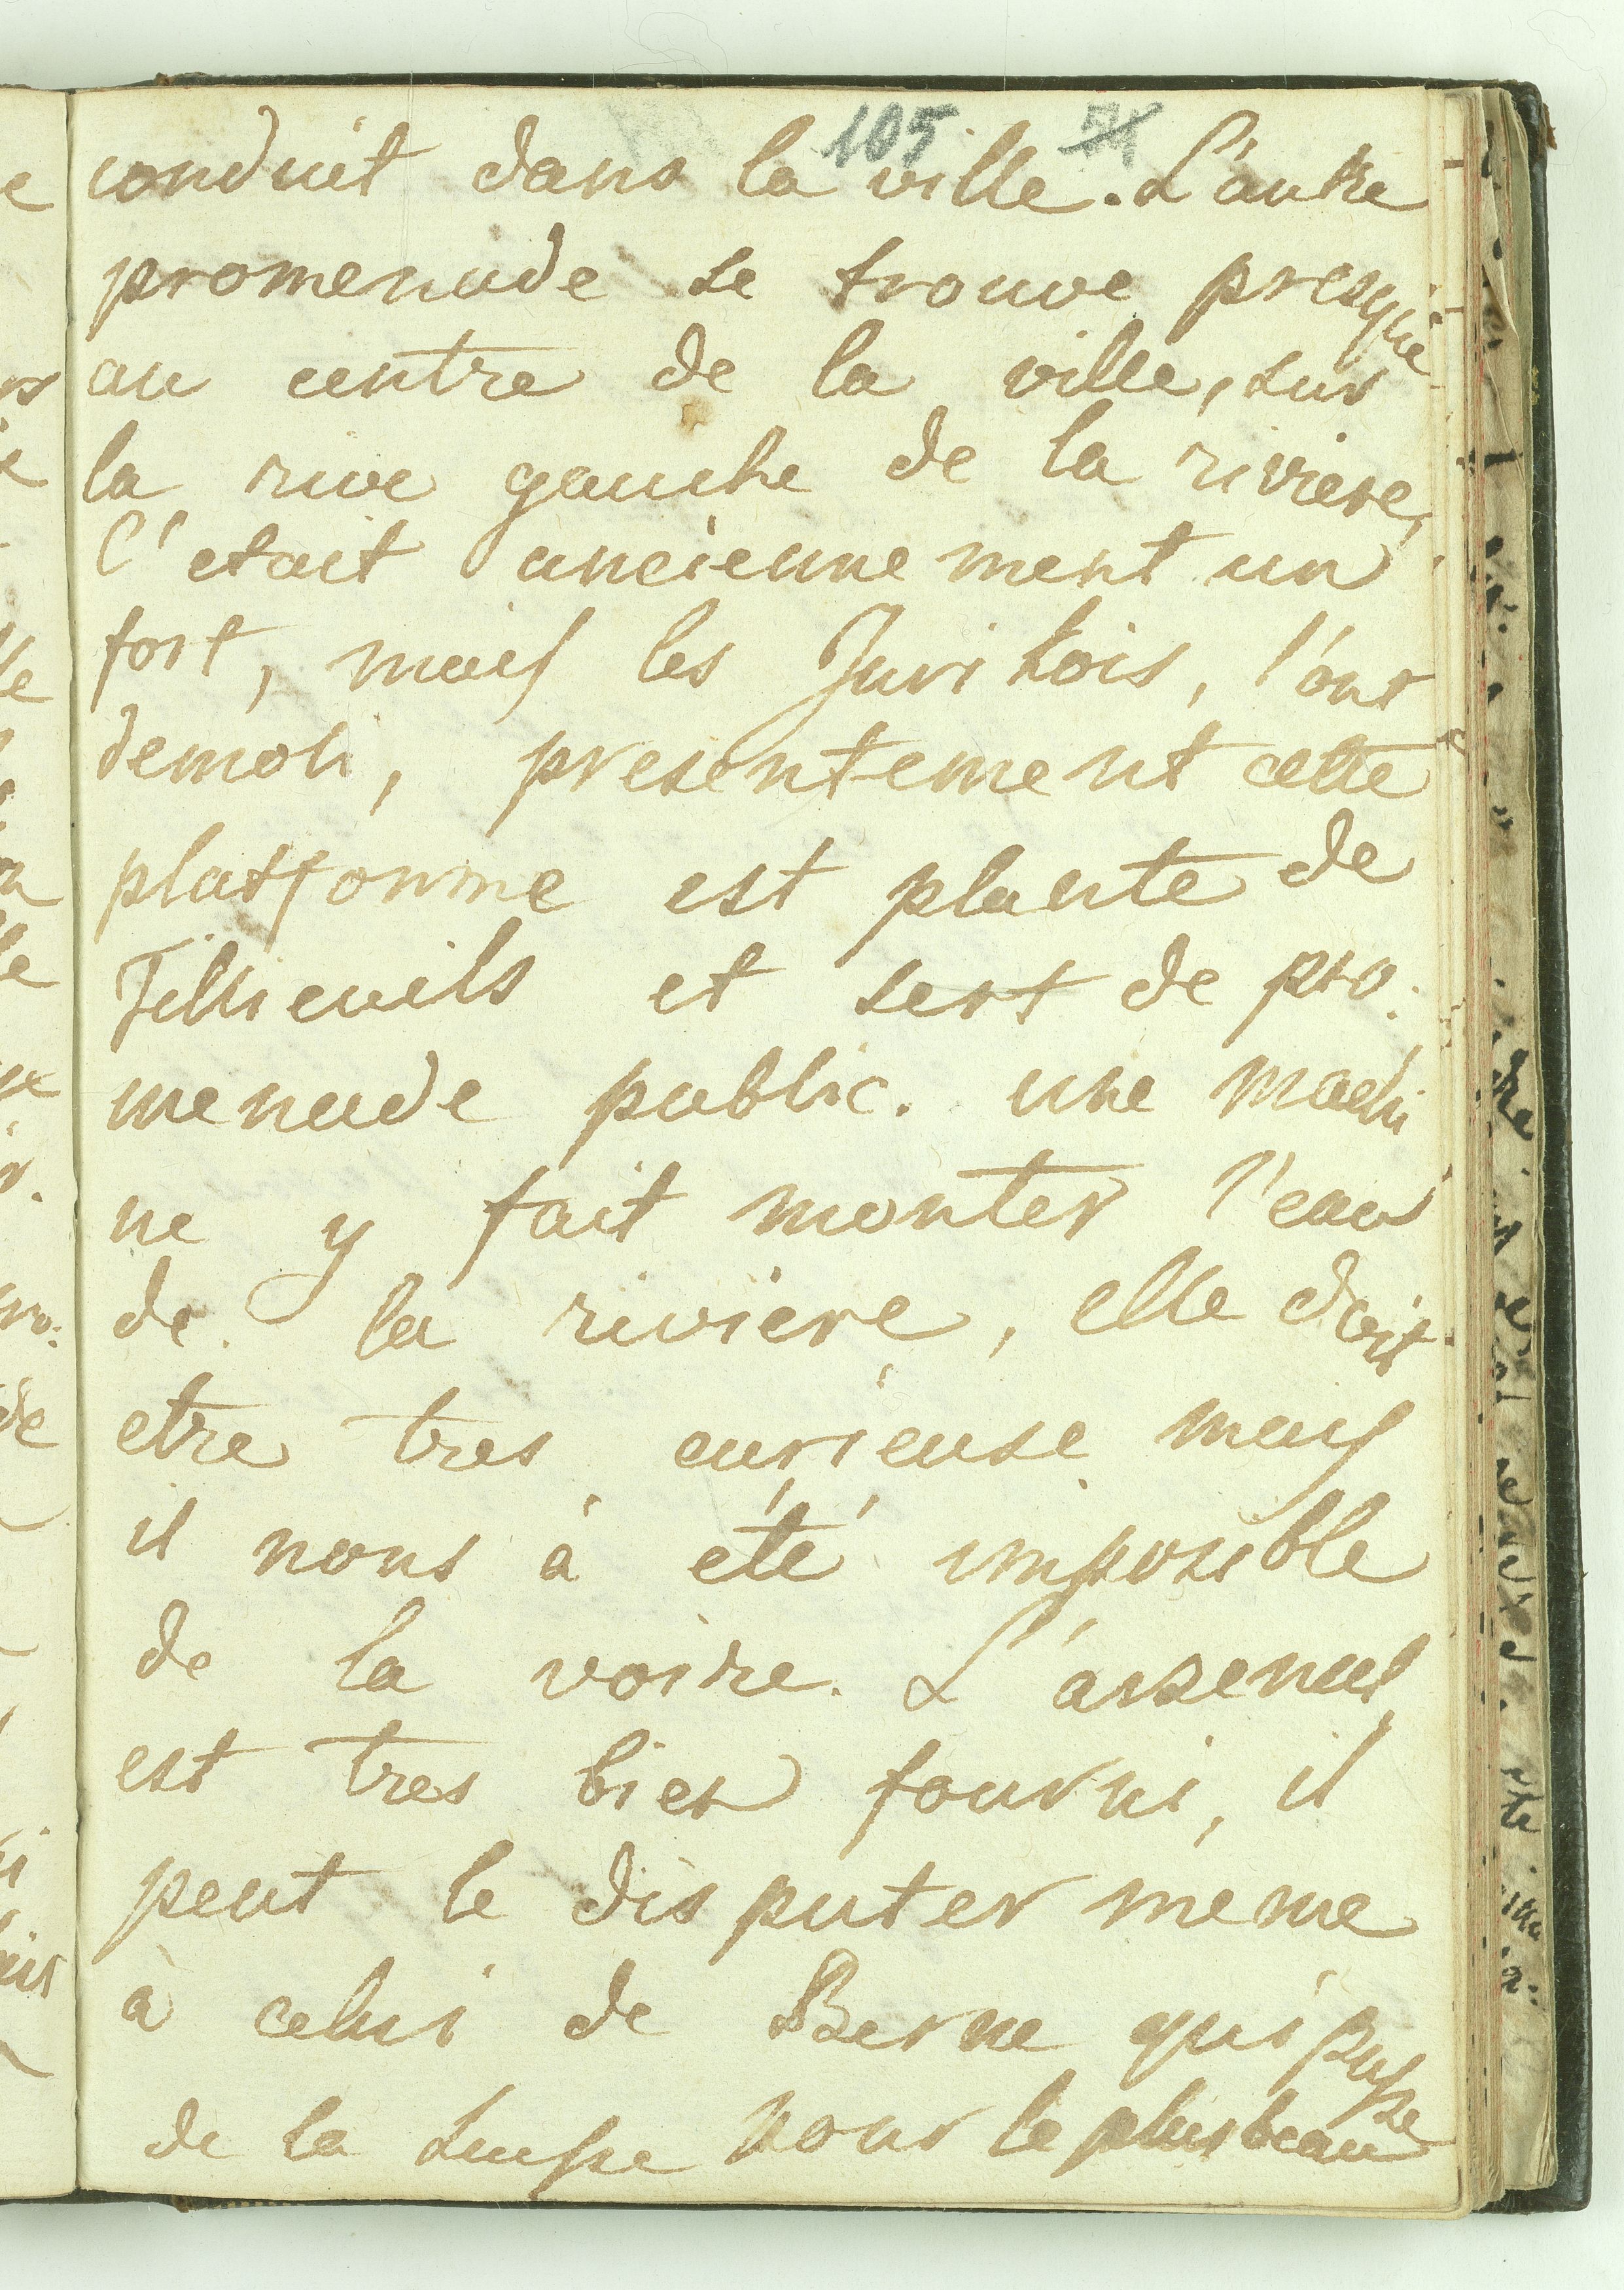 105
conduit dans la ville. L'autre
promenade se trouve presque
au centre de la ville, sur
la rive gauche de la riviere,
C'etait anciennement un
fort, mais les Zurikois, l'ont
demoli, presentement cette
platforme est plante de
Tillieuils et sert de pro:
menade public. une machi
ne y fait monter l'eau
de la riviere, elle doit
etre tres curieuse mais
il nous à été imposible
de la voire. L'arsenal
est tres bien fourni, il
peut le disputer meme
à celui de Berne qui passe
de la Suisse pour le plus beau